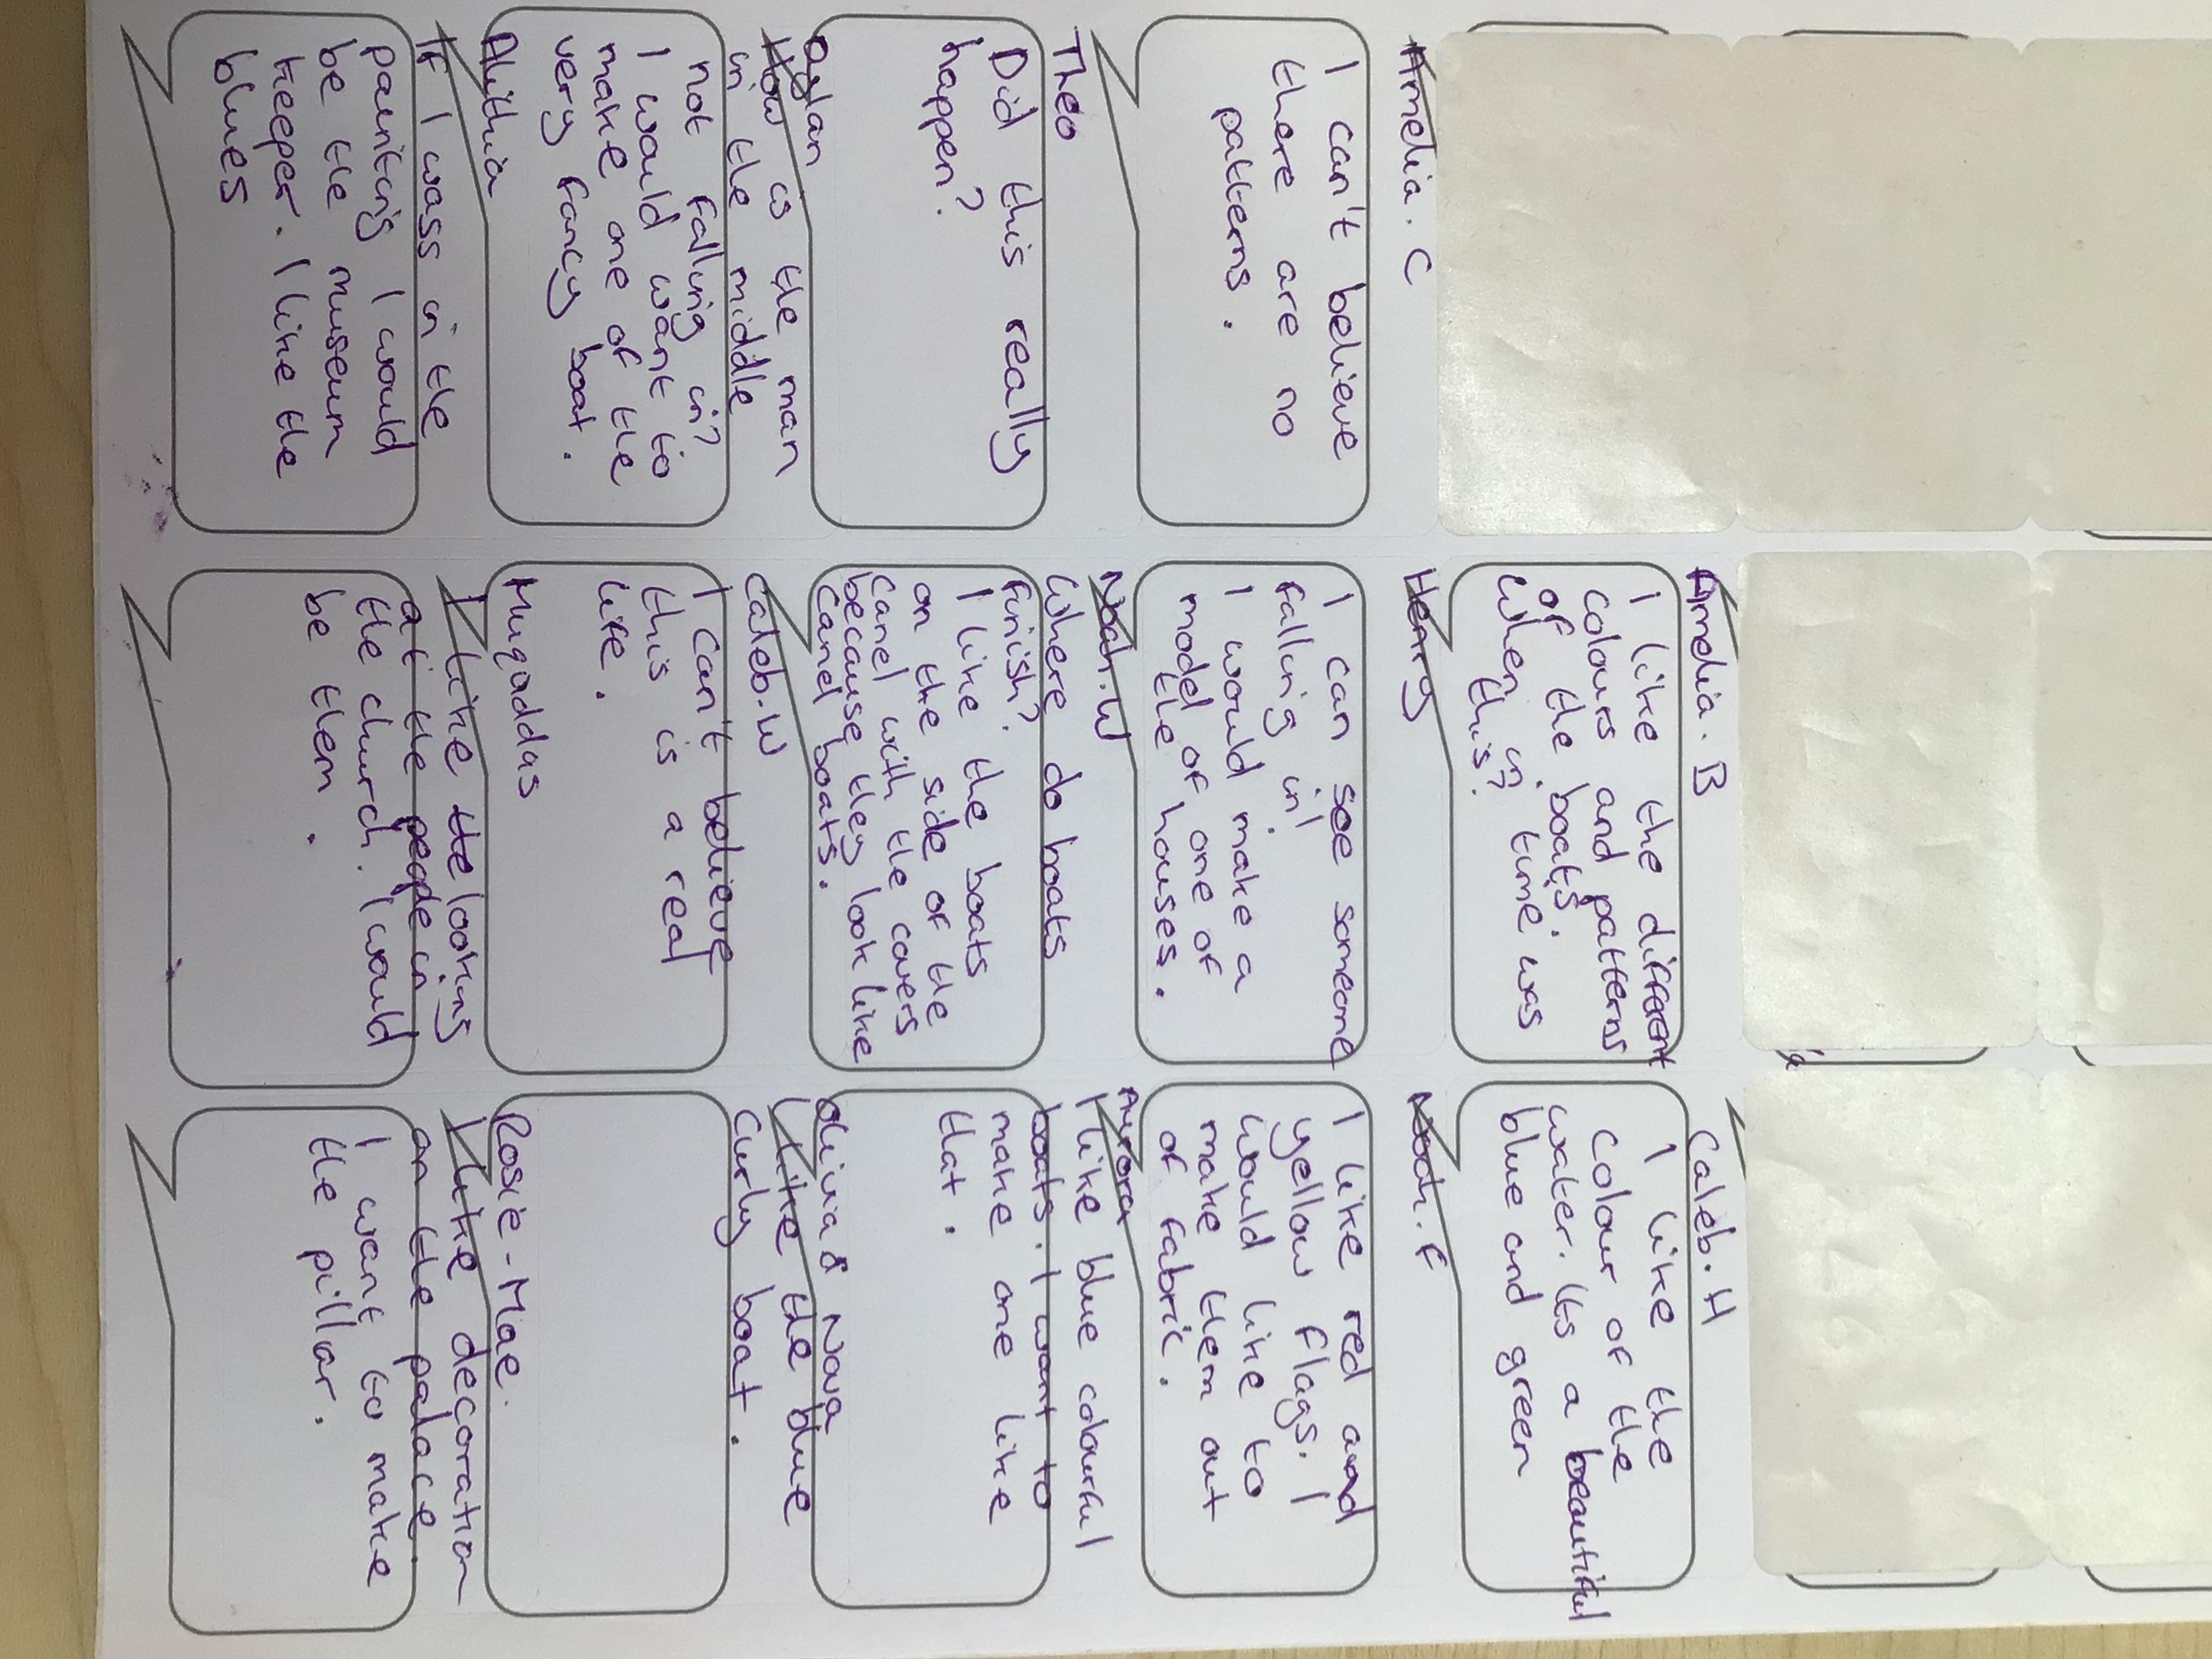 Amelia. B
I like the different
colours and patterns
of the boats.
When in time was
this?
Caleb. H
I like the
colour of the
water. Its a beautiful
blue and green
Amelia. C
I can't believe
there are no
patterns.
Henry
I can see someone
falling in!
I would make a
model of one of
the houses.
Noah. F
I like red and
yellow flags. I
would like to
make them out
of fabric.
Theo
Did this really
happen?
Noah. W
Where do boats
finish?
I like the boats
on the side of the
canel with the covers
because they look like
canel boats.
Aurora
I like blue colourful
boats. I want to
make one like
that.
Dylan
How is the man
in the middle
not falling in?
I would want to
make one of the
very fancy boat.
Caleb. W
I can't believe
this is a real
life.
Olivia & Nova
I like the blue
curly boat.
Alithia
If I wass in the
painting I would
be the museum
keeper. I like the
blues
Muqaddas
I like the looking
at the people in
the church. I would
be them.
Rosie-Mae.
I like decoration
on the palace.
I want to make
the pillar.